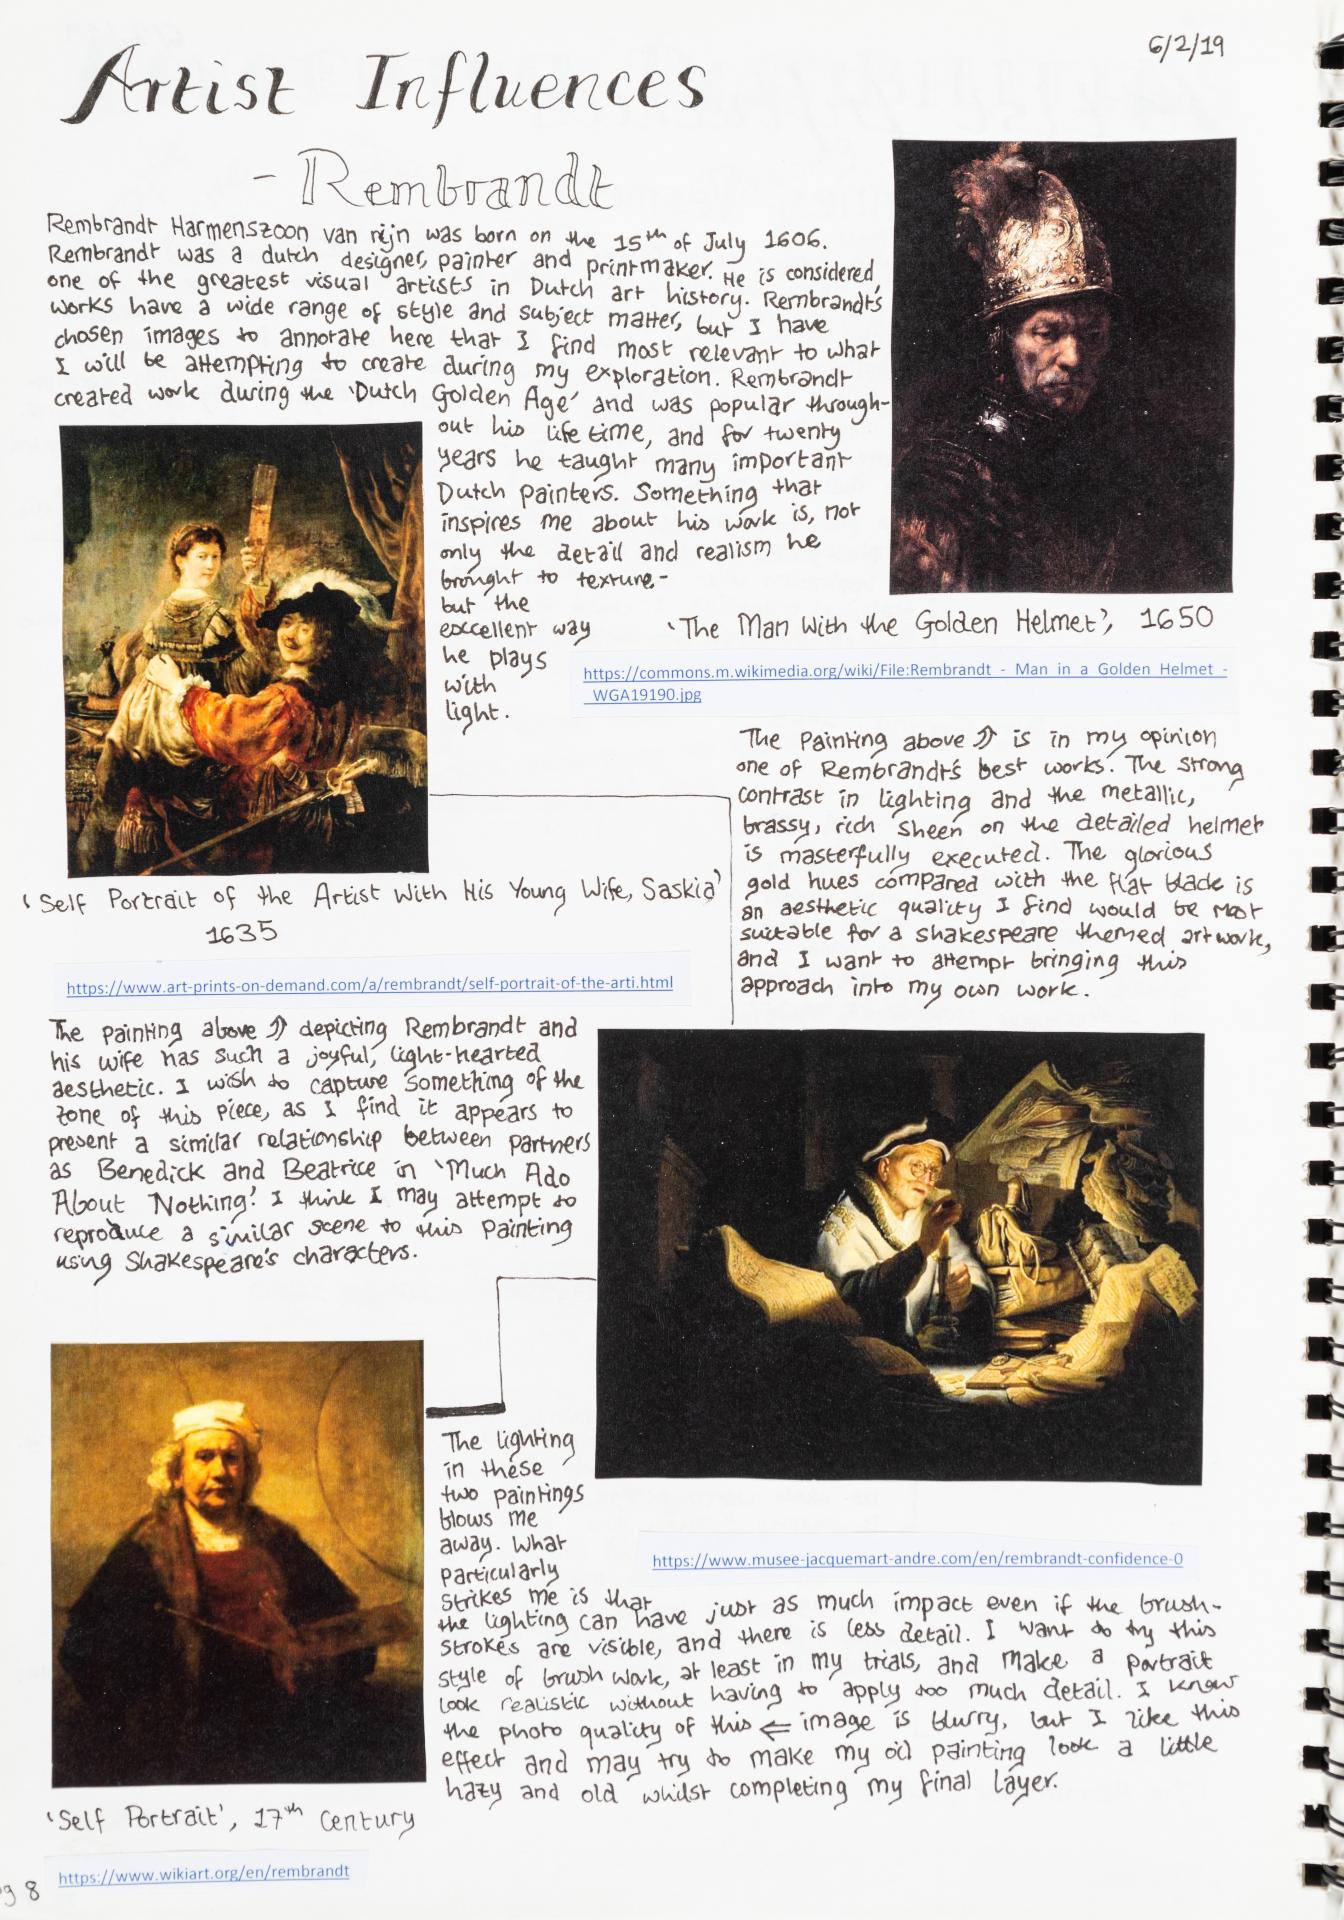 6/2/19
Artist Influences
- Rembrandt
Rembrandt Harmenszoon van rijn was born on the 15th of July 1606.
Rembrandt was a dutch designer, painter and printmaker. He is considered,
one of the greatest visual artists in Dutch art history. Rembrandt's
works have a wide range of style and subject matter, but I have
chosen images to annotate here that I find most relevant to what
I will be attempting to create during my exploration. Rembrandt
created work during the 'Dutch Golden Age' and was popular through-
out his life time, and for twenty
years he taught many important
Dutch painters. Something that
inspires me about his work is, not
only the detail and realism he
brought to texture-
but the
excellent way
he plays
with
light.
'The Man With the Golden Helmet', 1650
https://commons.m.wikimedia.org/wiki/File:Rembrandt_-_Man_in_a_Golden_Helmet_-
_WGA19190.jpg
The Painting above ⇗ is in my opinion
one of Rembrandt's best works. The strong
contrast in lighting and the metallic,
brassy, rich sheen on the detailed helmet
is masterfully executed. The glorious
gold hues compared with the flat black is
an aesthetic quality I find would be most
suitable for a shakespeare themed artwork,
and I want to attempt bringing this
approach into my own work.
'Self Portrait of the Artist With His Young Wife, Saskia'
1635
https://www.art-prints-on-demand.com/a/rembrandt/self-portrait-of-the-arti.html
The painting above ⇗ depicting Rembrandt and
his wife has such a joyful, light-hearted
aesthetic. I wish to capture something of the
tone of this piece, as I find it appears to
present a similar relationship between partners
as Benedick and Beatrice in 'Much Ado
About Nothing'. I think I may attempt to
reproduce a similar scene to this painting
using Shakespeare's characters.
The lighting
in these
two paintings
blows me
away. What
particularly
strikes me is that
the lighting can have just as much impact even if the brush-
strokes are visible, and there is less detail. I want to try this
style of brush work, at least in my trials, and make a portrait
look realistic without having to apply too much detail. I know
the photo quality of this ⇐ image is blurry, but I like this
effect and may try to make my oil painting look a little
hazy and old whilst completing my final layer.
https://www.musee-jacquemart-andre.com/en/rembrandt-confidence-0
'Self Portrait', 17th Century
https://www.wikiart.org/en/rembrandt
pg 8